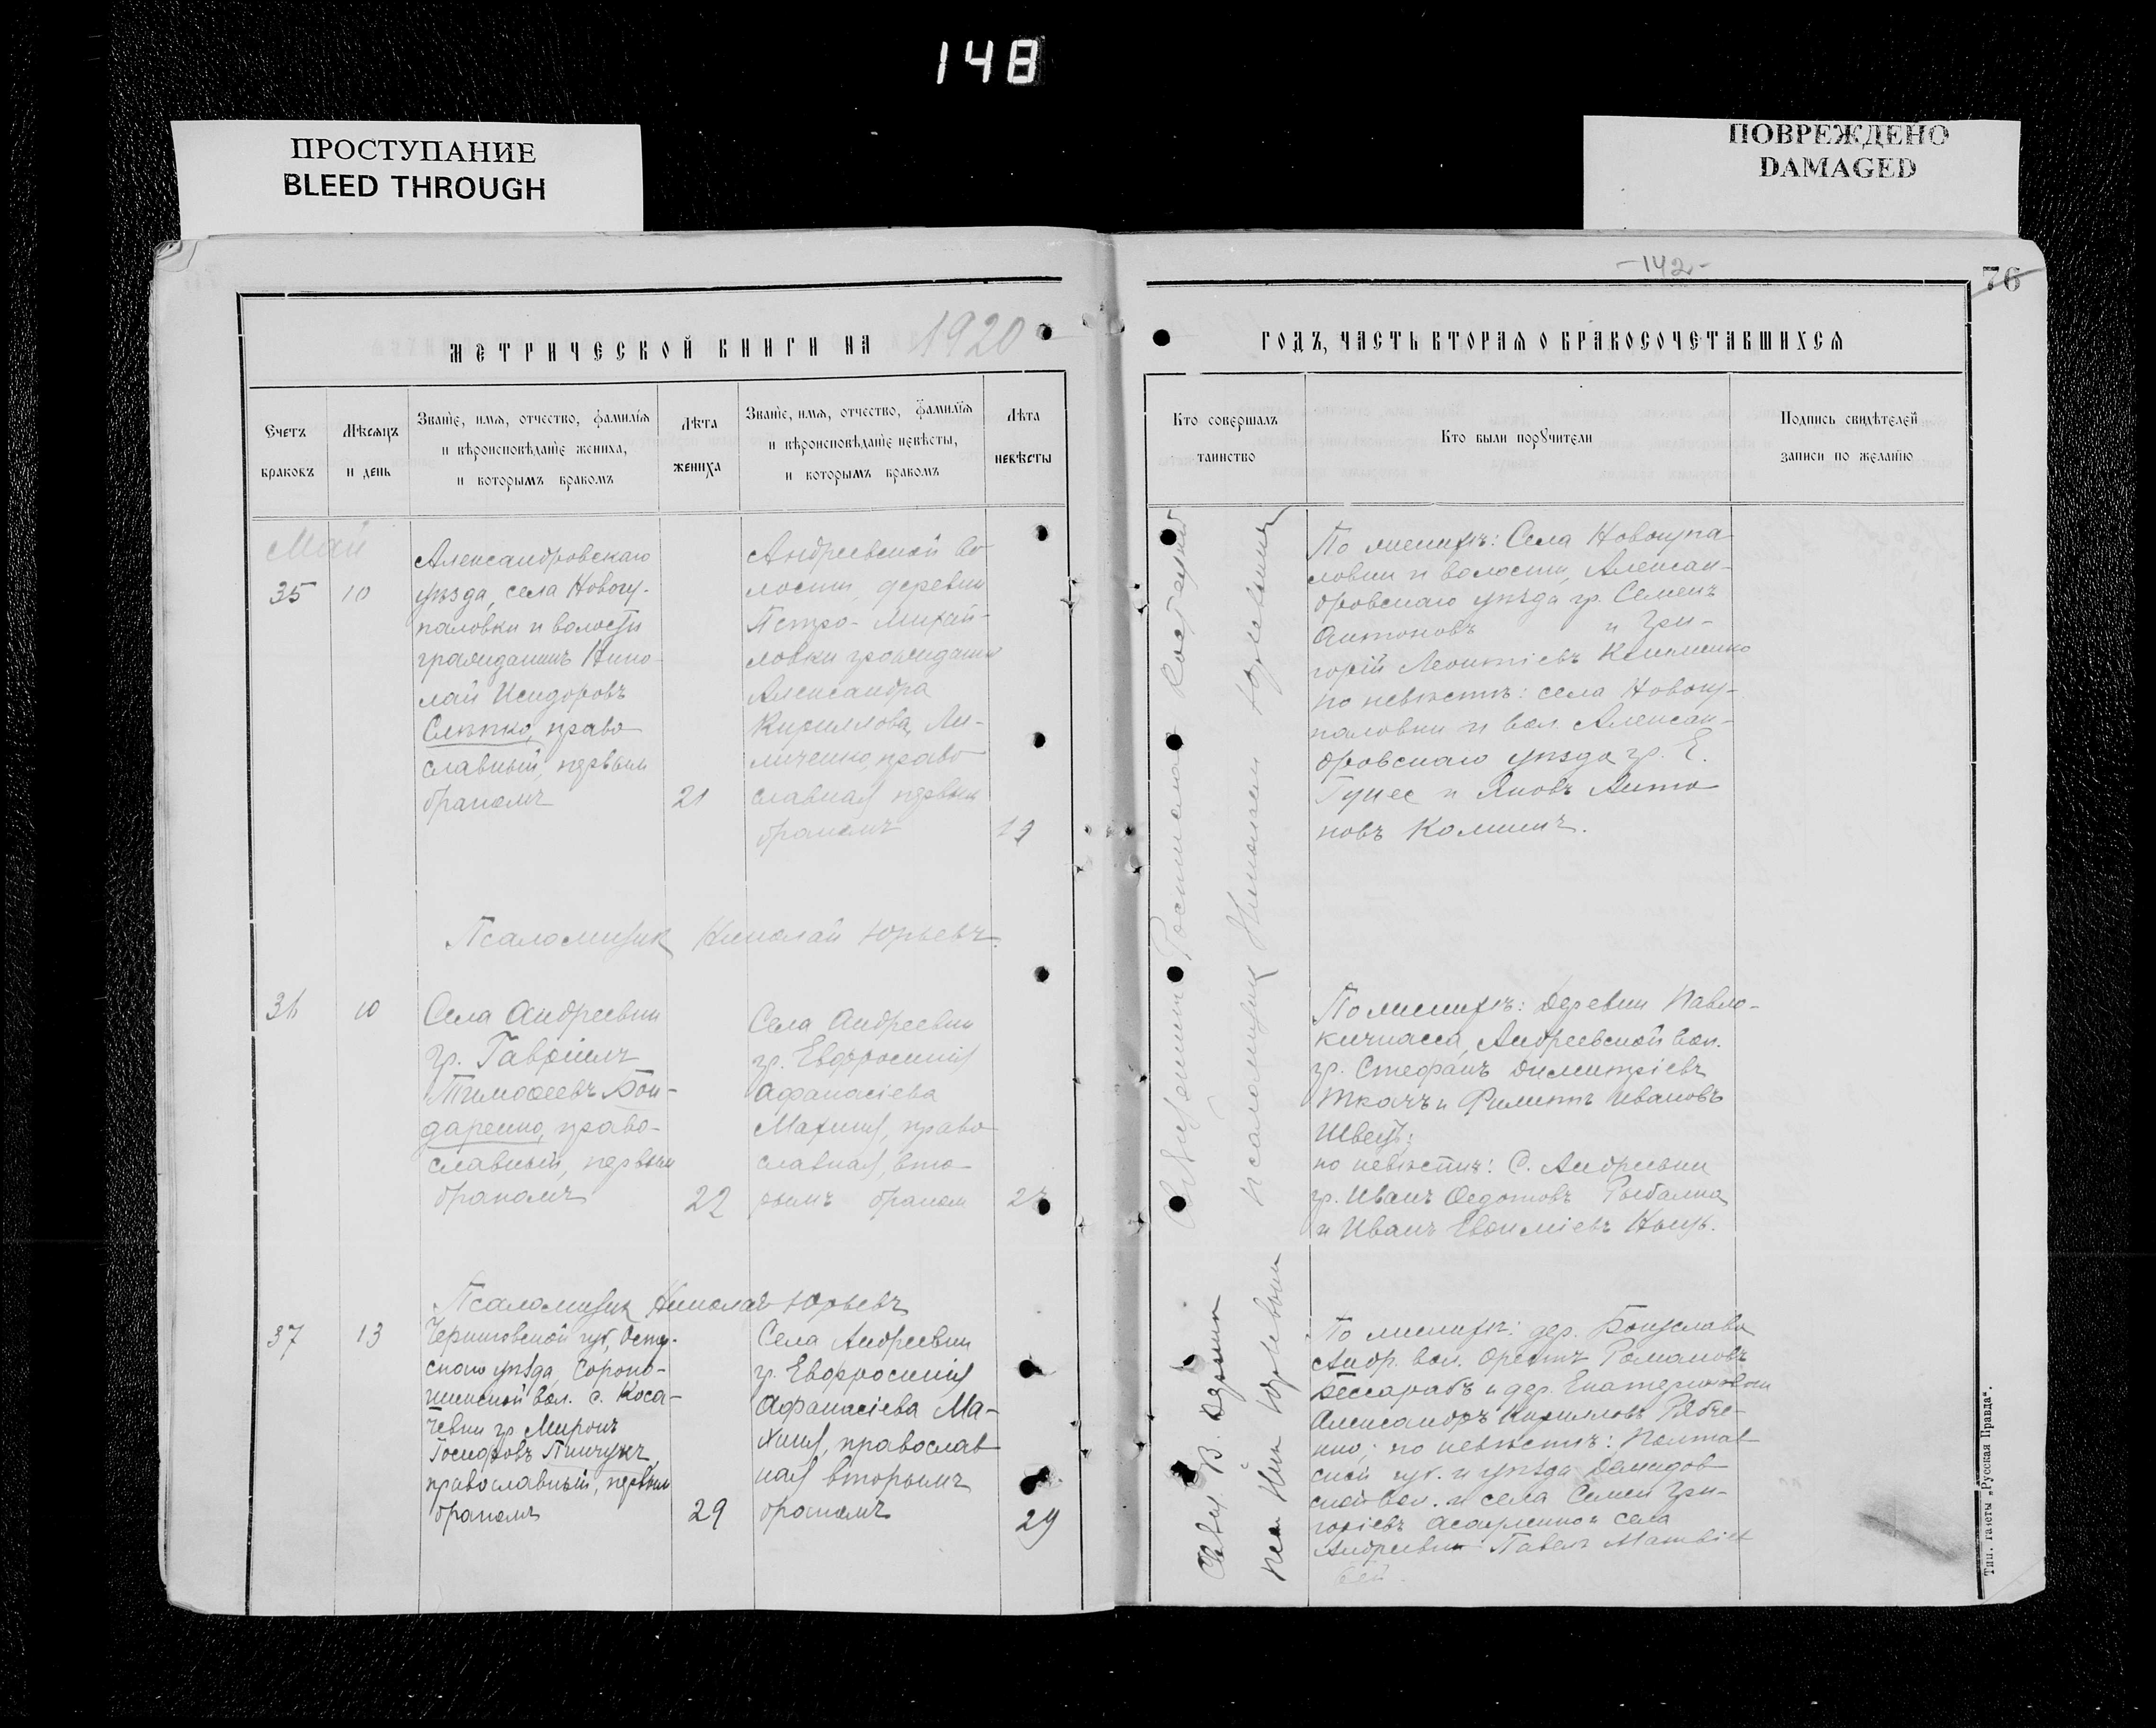 148
ПРОСТУПАНИЕ
BLEED THROUGH
ПОВРЕЖДЕНО
DAMAGED
-142-
76
МЕТРИЧЕСКОЙ КНИГИ НА 1920
ГОДЪ, ЧАСТЬ ВТОРАЯ О БРАКОСОЧЕТАВШИХСЯ
Счетъ
браковъ
Мѣсяцъ
и день
Званїе, имя, отчество, фамилїя
и вѣроисповѣданїе жениха,
и которымъ бракомъ
Лѣта
жениха
Званїе, имя, отчество, фамилїя
и вѣроисповѣданїе невѣсты,
и которымъ бракомъ
Лѣта
невѣсты
Кто совершалъ
таинство
Кто были порꙋчители
Подпись свидѣтелей
записи по желанїю
Май
35
10
Александровскаго
уѣзда, села Новогу-
паловки и волости
гражданинъ Нико-
лай Исидоровъ
Слѣпко, право
славный, первым
бракомъ
21
Андреевской во
лости, деревни
Петро-Михай-
ловки гражданка
Александра
Кириллова, Ли-
личенко, право
славная первым
бракомъ
Священник
псаломщик Николаем Юрьевымъ
По женихѣ: Села Новогупа
ловки и волости, Алексан-
дровскаго уѣзда гр. Семенъ
Антоновъ и Гри-
горій Леонтіевъ
по невѣстѣ: села Новогу-
паловки и вол. Алексан-
дровскаго уѣзда гр. Е.
и Яковъ Анто
новъ
Псаломщик Николай Юрьевъ.
36
10
Села Андреевки
гр. Гавріилъ
Тимоѳеевъ Бон-
даренко, право-
славный, первым
бракомъ
22
Села Андреевки
гр. Евфросинія
Афанасіева
Махиня, право
славная, вто-
рымъ браком
По женихѣ: Деревни Павло-
кичкасса, Андреевской вол.
гр. Стефанъ Димитріевъ
Ткачъ и Филиппъ Ивановъ
Швецъ;
по невѣстѣ: С. Андреевки
гр. Иванъ Ѳедотовъ Рыбалка
и Иванъ Евѳиміевъ Куць.
Псаломщик Николай Юрьевъ
37
13
Черниговской губ, Остер-
скаго уѣзда, Сороко-
шинской вол. с. Коса-
чевки гр Миронъ
Іосифовъ Пинчукъ,
православный, первым
бракомъ
29
Села Андреевки
гр. Евфросинія
Афанасіева Ма-
хиня, православ
ная вторымъ
бракомъ
29
Свящ. В.
Юрьевым
По женихѣ: дер. Богуславка
Андр. вол. Орестъ Романовъ
Бессарабъ и дер. Екатериновки
Александръ Кирилловъ Рябче-
нко; по невѣстѣ: Полтав
ской губ. и уѣзда Демидов-
ской вол. и села Семен Гри-
горіевъ и села
Андреевки Павелъ
Тип. газеты „Русская Правда“.